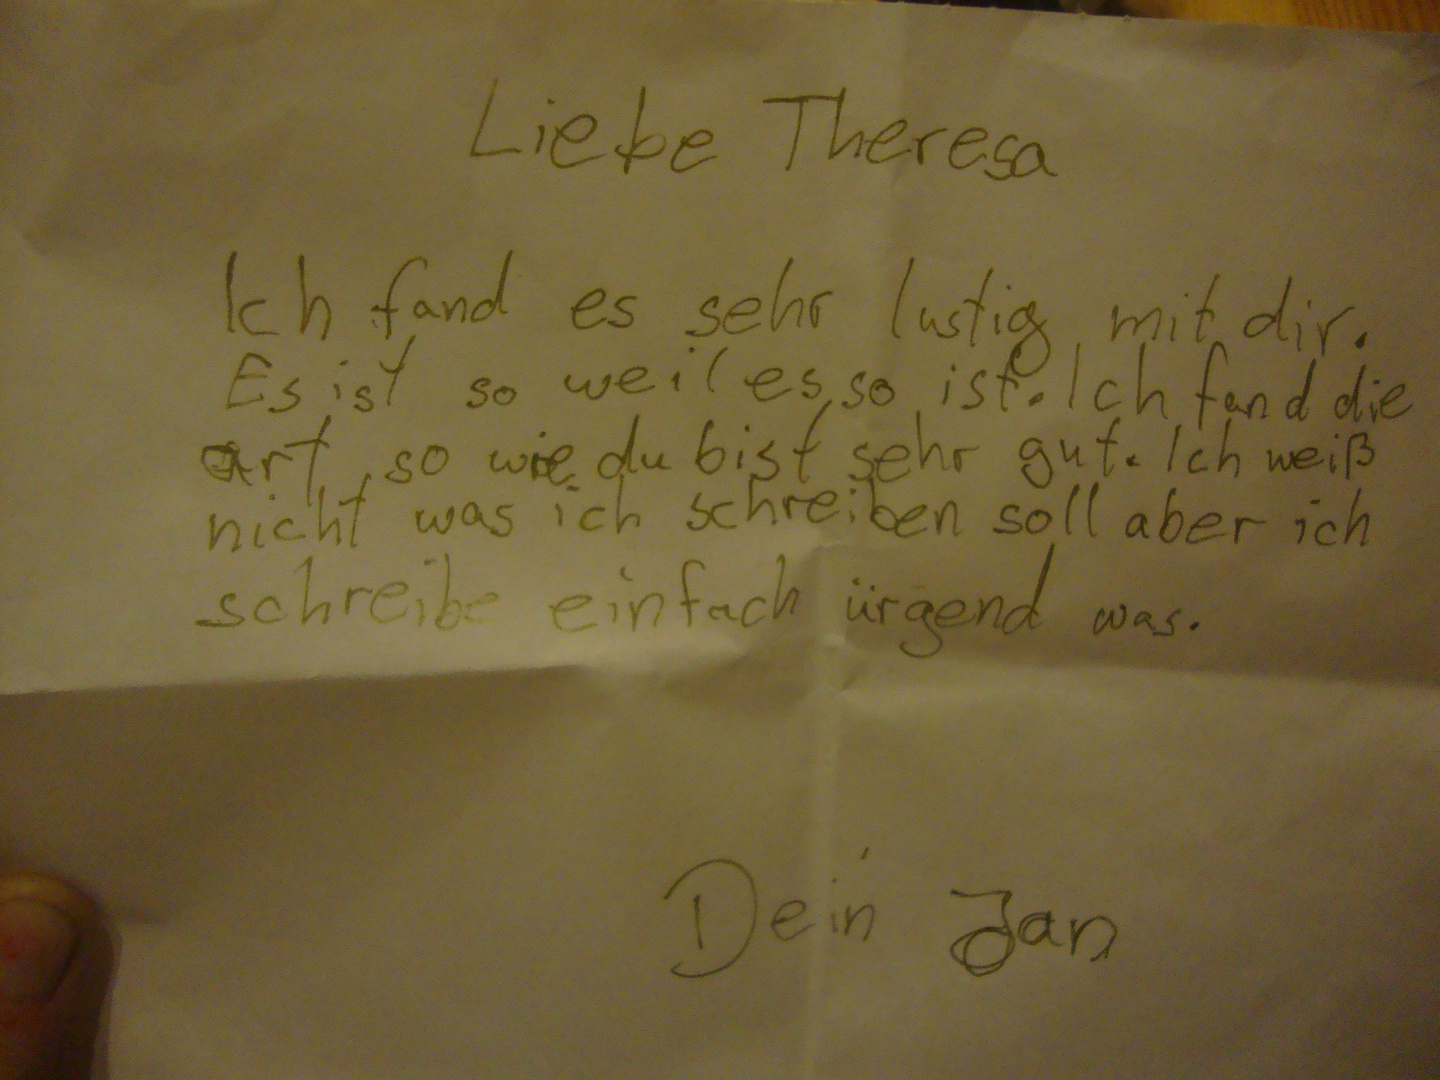 Liebe Theresa
Ich fand es sehr lustig mit dir.
Es ist so weil es so ist. Ich fand die
art so wie du bist sehr gut. Ich weiß
nicht was ich schreiben soll aber ich
schreibe einfach ürgend was.
Dein Jan